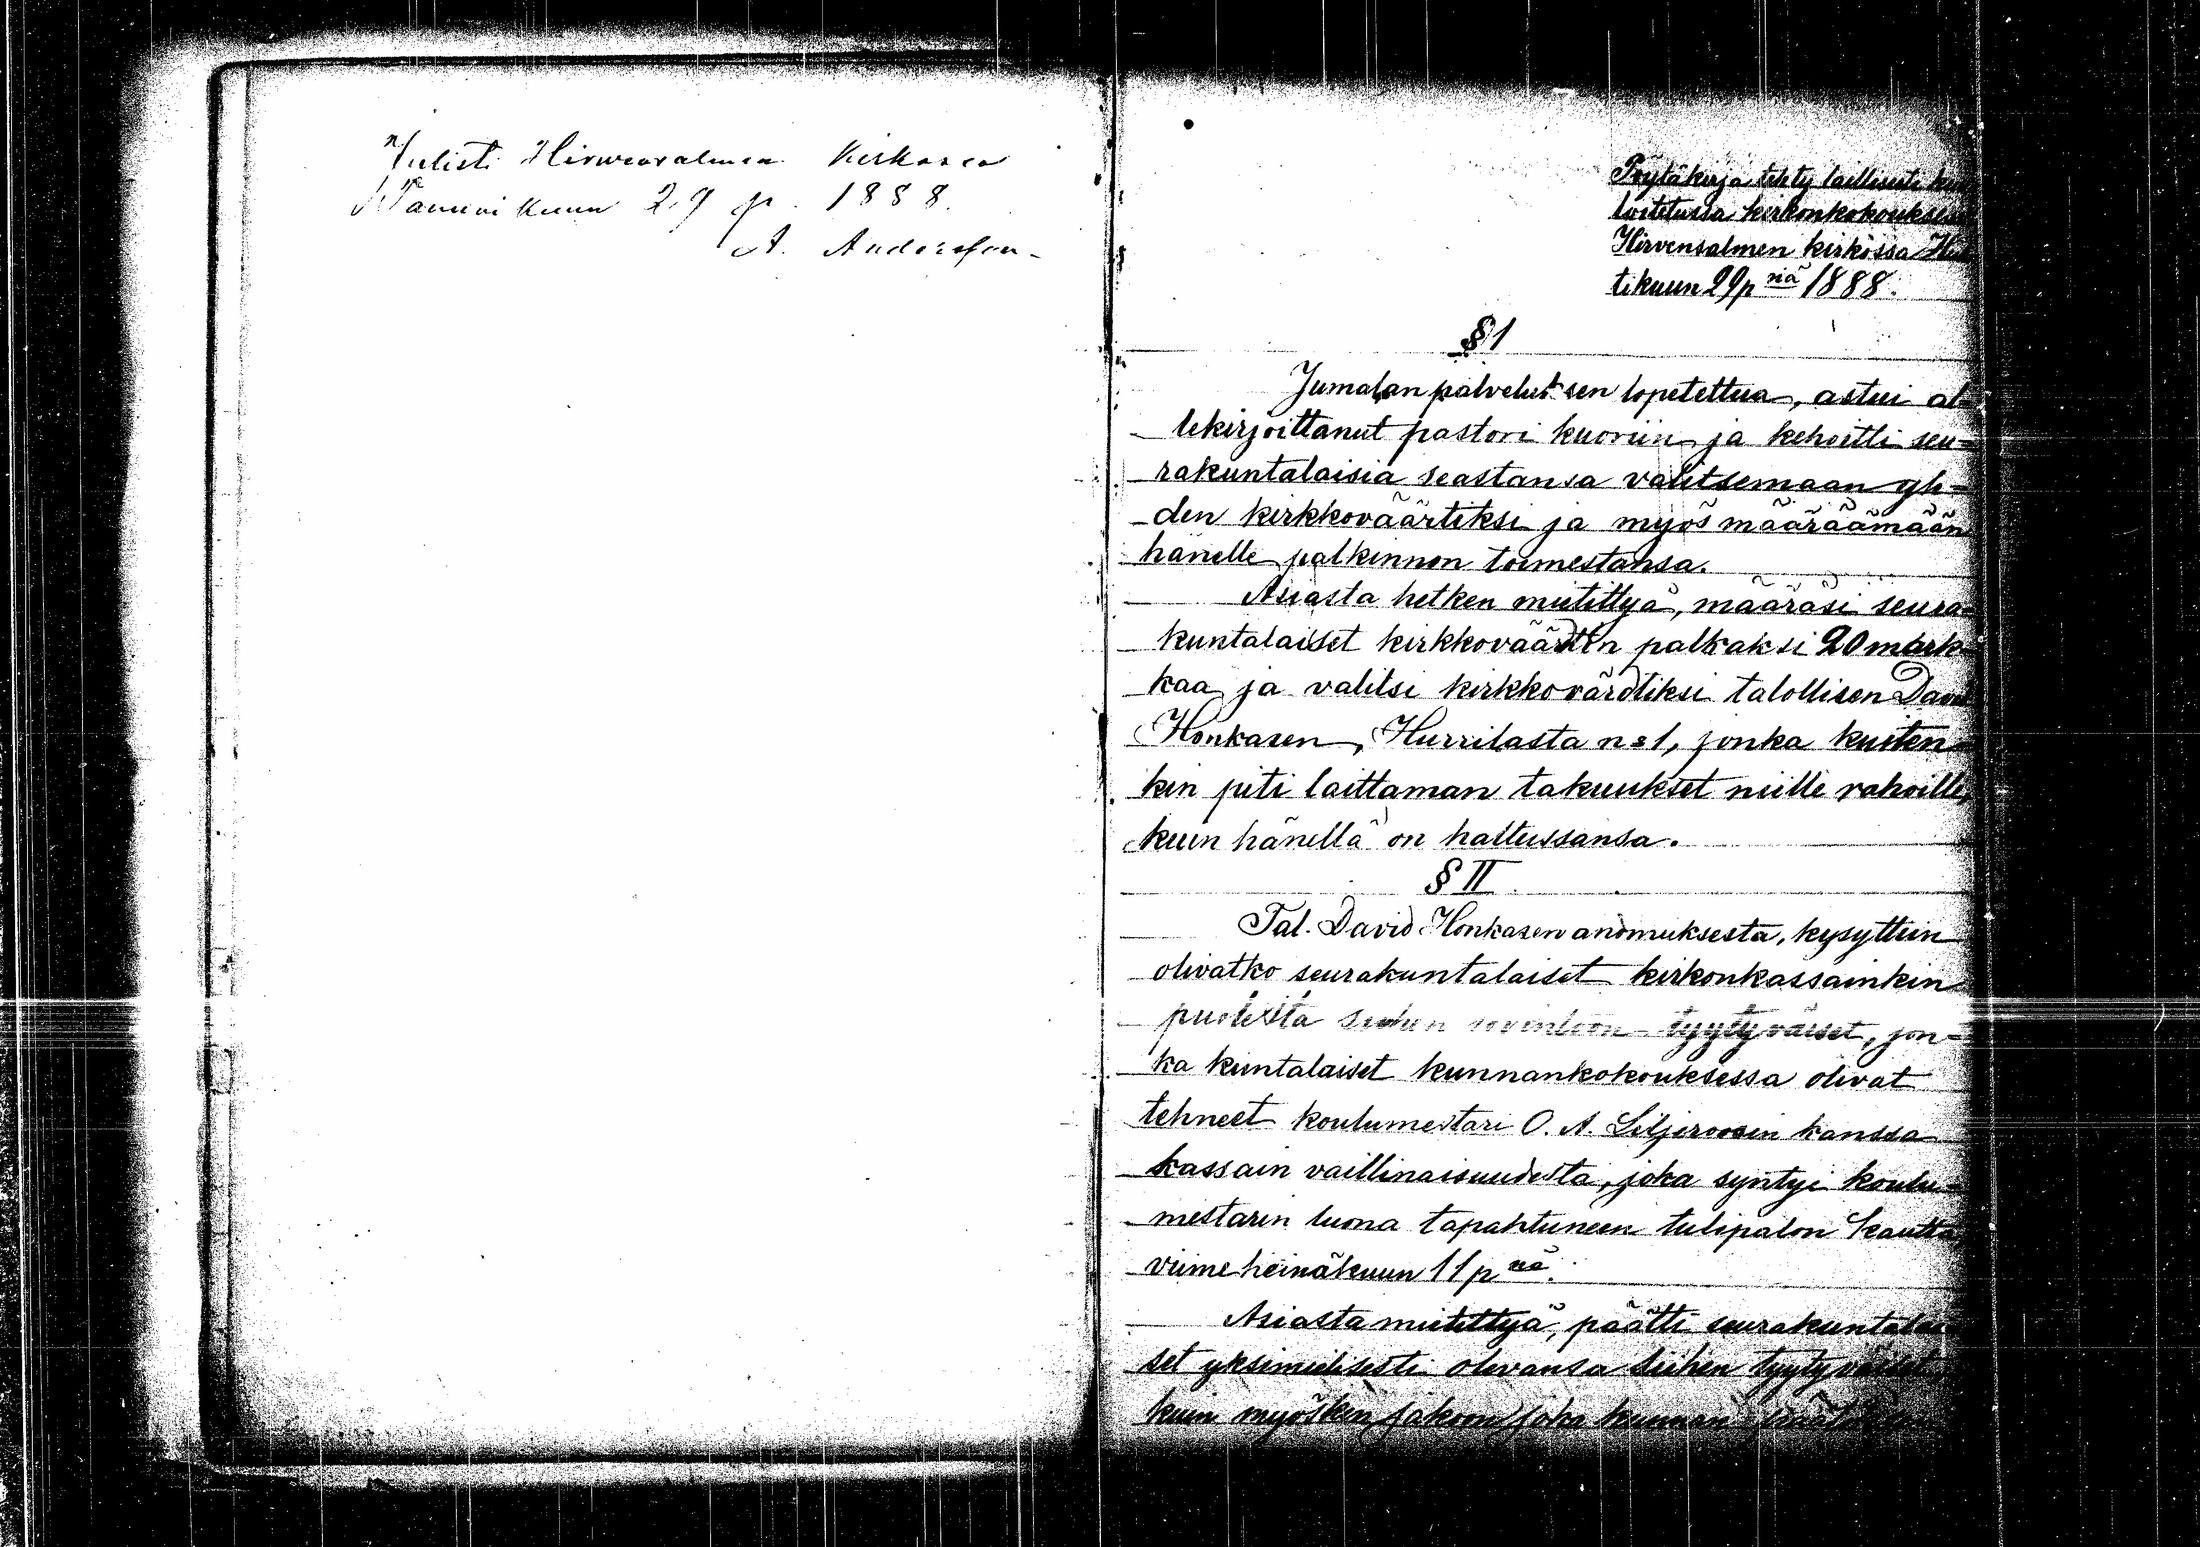 Julisti Hirwensalmen Kirkossa
Tammikuun 29 p. 1888.
A. Andersson
Pöytäkirja tehty laillisesti kuu
lutetussa kirkonkokouksessa
Hirvensalmen kirkossa Huh
tikuun 29 p nä 1888.
§ 1
Jumalan palveluksen lopetettua, astui al-
lekirjoittanut pastori kuoriin ja kehoitti seu-
rakuntalaisia seastansa valitsemaan yh-
den kirkkoväärtiksi ja myös määräämään
hänelle palkinnon toimestansa.
Asiasta hetken mietittyä, määräsi seura-
kuntalaiset kirkkoväärtin palkaksi 20 mark-
kaa ja valitsi kirkkovärdtiksi talollisen David
Honkasen, Hurrilasta n=1, jonka kuiten-
kin piti laittaman takuukset niille rahoille,
kuin hänellä on haltussansa.
§ II
Tal. David Honkasen anomuksesta, kysyttiin
olivatko seurakuntalaiset kirkonkassainkin
puolesta siihen sovintoon tyytyväiset, jon-
ka kuntalaiset kunnankokouksessa olivat
tehneet koulumestari O. A. Liljeroosin kanssa
kassain vaillinaisuudesta, joka syntyi koulu-
mestarin luona tapahtuneen tulipalon kautta
viime heinäkuun 11 p nä.
Asiasta mietittyä, päätti seurakuntalai
set yksimielisesti olevansa siihen tyytyväiset
kuin myöskin jakoon joka kunnan